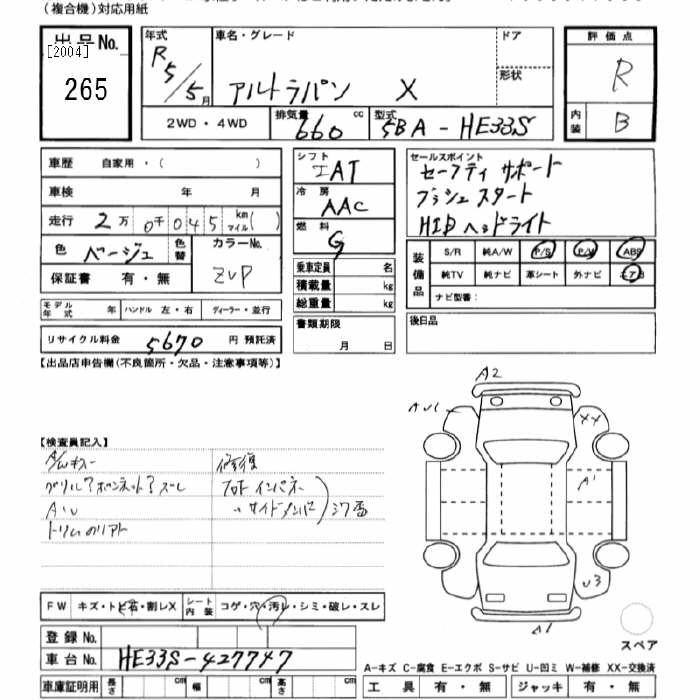 (複合機)対応用紙
出品No. [2004] 265
年式 R5/5月
車名・グレード アルトラパン X
ドア
形状
評価点 R
内装 B
2WD・4WD
排気量 660 cc
型式 5BA-HE33S
車歴 自家用・( )
車検 年 月
走行 2万0千045 km マイル( )
色 ベージュ 色替 カラーNo. ZVP
保証書 有・無
モデル年式 年 ハンドル 左・右 ディーラー・並行
リサイクル料金 5670 円 預託済
シフト IAT
冷房 AAC
燃料 G
乗車定員 名
積載量 kg
総重量 kg
書類期限
月 日
セールスポイント
セーフティ サポート
プッシュスタート
HIDヘッドライト
装備品 S/R 純A/W P/S P/W ABS
純TV 純ナビ 革シート 外ナビ エアB
ナビ型番:
後日品
【出品店申告欄(不良箇所・欠品・注意事項等)】
【検査員記入】
A/Wキズ 修復
グリル?ボンネット?ズレ フロントインパネ
AU 〃サイドメンバ
トリムのリアト
A2
AU1
XX
A1
U3
A1
FW キズ・トビ石・割レX シート内装 コゲ・穴・汚レ・シミ・破レ・スレ
登録No.
車台No. HE33S-427747
車庫証明用 長さ cm 幅 cm 高さ cm
スペア
A-キズ C-腐食 E-エクボ S-サビ U-凹ミ W-補修 XX-交換済
工具 有・無 ジャッキ 有・無